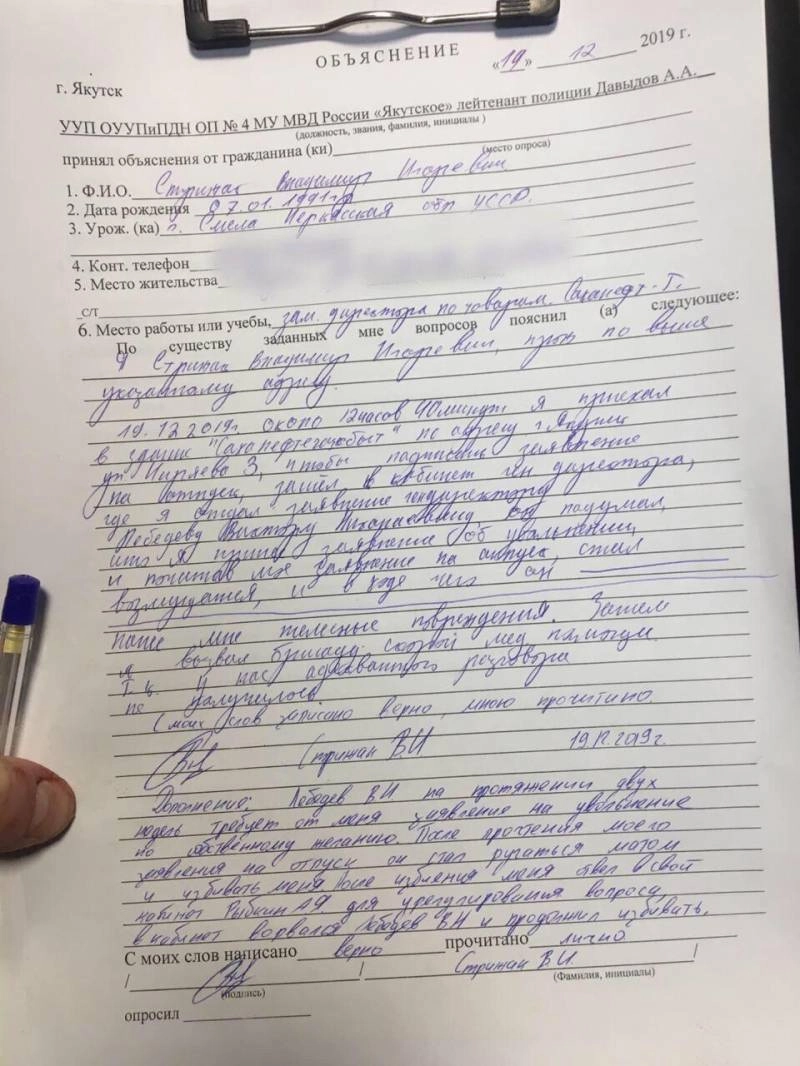 ОБЪЯСНЕНИЕ
«19» 12 2019 г.
г. Якутск
УУП ОУУПиПДН ОП № 4 МУ МВД России «Якутское» лейтенант полиции Давыдов А.А.
(должность, звания, фамилия, инициалы )
принял объяснения от гражданина (ки)
(место опроса)
1. Ф.И.О. Стрижак Владимир Игоревич
2. Дата рождения 07.01.1991г/р
3. Урож. (ка) г. Смела Черкасская обл УССР.
4. Конт. телефон
5. Место жительства
с/т
6. Место работы или учебы, зам. директора по товарам. Саханефт-Т.
По существу заданных мне вопросов пояснил (а) следующее:
Я Стрижак Владимир Игоревич, прож по выше
указанному адресу.
19.12.2019г. около 12 часов 40 минут я приехал
в здание "Саханефтегазсбыт" по адресу г. Якутск
ул Чиряева 3, чтобы подписать заявление
на отпуск, зашёл в кабинет ген директора,
где я отдал заявление гендиректору
Лебедеву Виктору он подумал,
что я принес заявление об увольнении,
и почитав моё заявление на отпуск, стал
возмущатся, и в ходе чего он
нанес мне телесные повреждения. Затем
я вызвал бригаду скорой мед помощи
т.к. у нас адекватного разговора
не получилось.
С моих слов записано верно, мною прочитано.
Стрижак В.И. 19.12.2019г.
Дополнение: Лебедев ВН на протяжении двух
недель требует от меня заявление на увольнение
по собственному желанию. После прочтения моего
заявления на отпуск он стал ругаться матом
и избивать меня. После избиения меня отвел в свой
кабинет Рыбкин АФ. для урегулирования вопроса,
в кабинет ворвался Лебедев ВН и продолжил избивать.
С моих слов написано верно прочитано лично
/ / Стрижак В.И. /
(подпись) (Фамилия, инициалы)
опросил